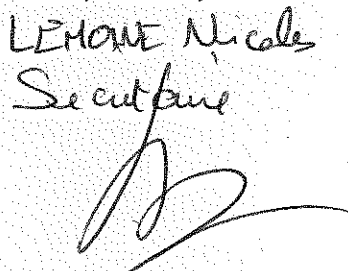 LEMOINE Nicolas
Secrétaire